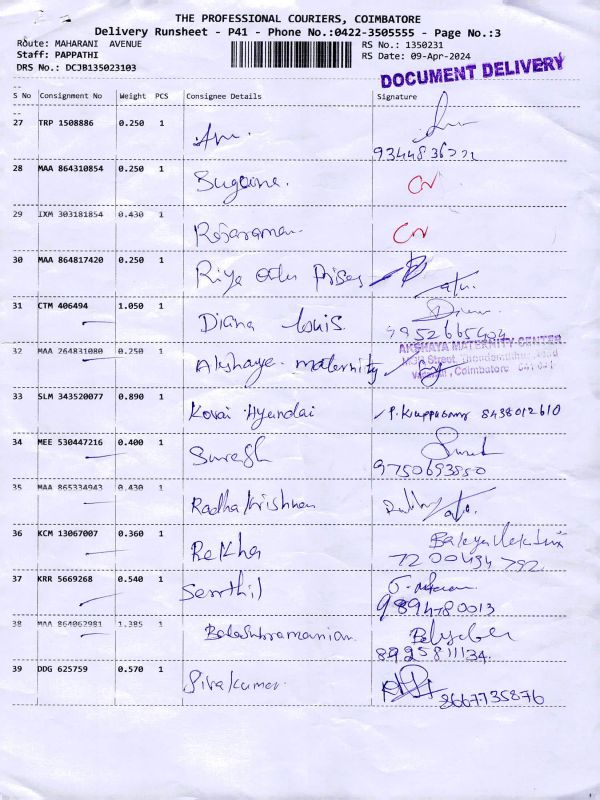 THE PROFESSIONAL COURIERS, COIMBATORE
Delivery Runsheet - P41 - Phone No.:0422-3505555 - Page No.:3
Route: MAHARANI AVENUE RS No.: 1350231
Staff: PAPPATHI RS Date: 09-Apr-2024
DRS No.: DCJB135023103
DOCUMENT DELIVERY
S No Consignment No Weight PCS Consignee Details Signature
27 TRP 1508886 0.250 1
28 MAA 864310854 0.250 1
29 IXM 303181854 0.430 1 Rajaraman
30 MAA 864817420 0.250 1 Riya
31 CTM 406494 1.050 1 Diana Louis.
9952665404
AKSHAYA MATERNITY CENTER
32 MAA 264831080 0.250 1 Akshaya maternity
Coimbatore
33 SLM 343520077 0.890 1 Kovai Hyundai P. Kuppusamy 8438012610
34 MEE 530447216 0.400 1 Suresh
9750693550
35 MAA 865334943 0.430 1 Radhakrishnan
36 KCM 13067007 0.360 1 Rekha
7200434792
37 KRR 5669268 0.540 1 Senthil
9894780013
38 MAA 864062981 1.385 1 Balasubramanian
8925811134.
39 DDG 625759 0.570 1 Sivakumar
8667735876